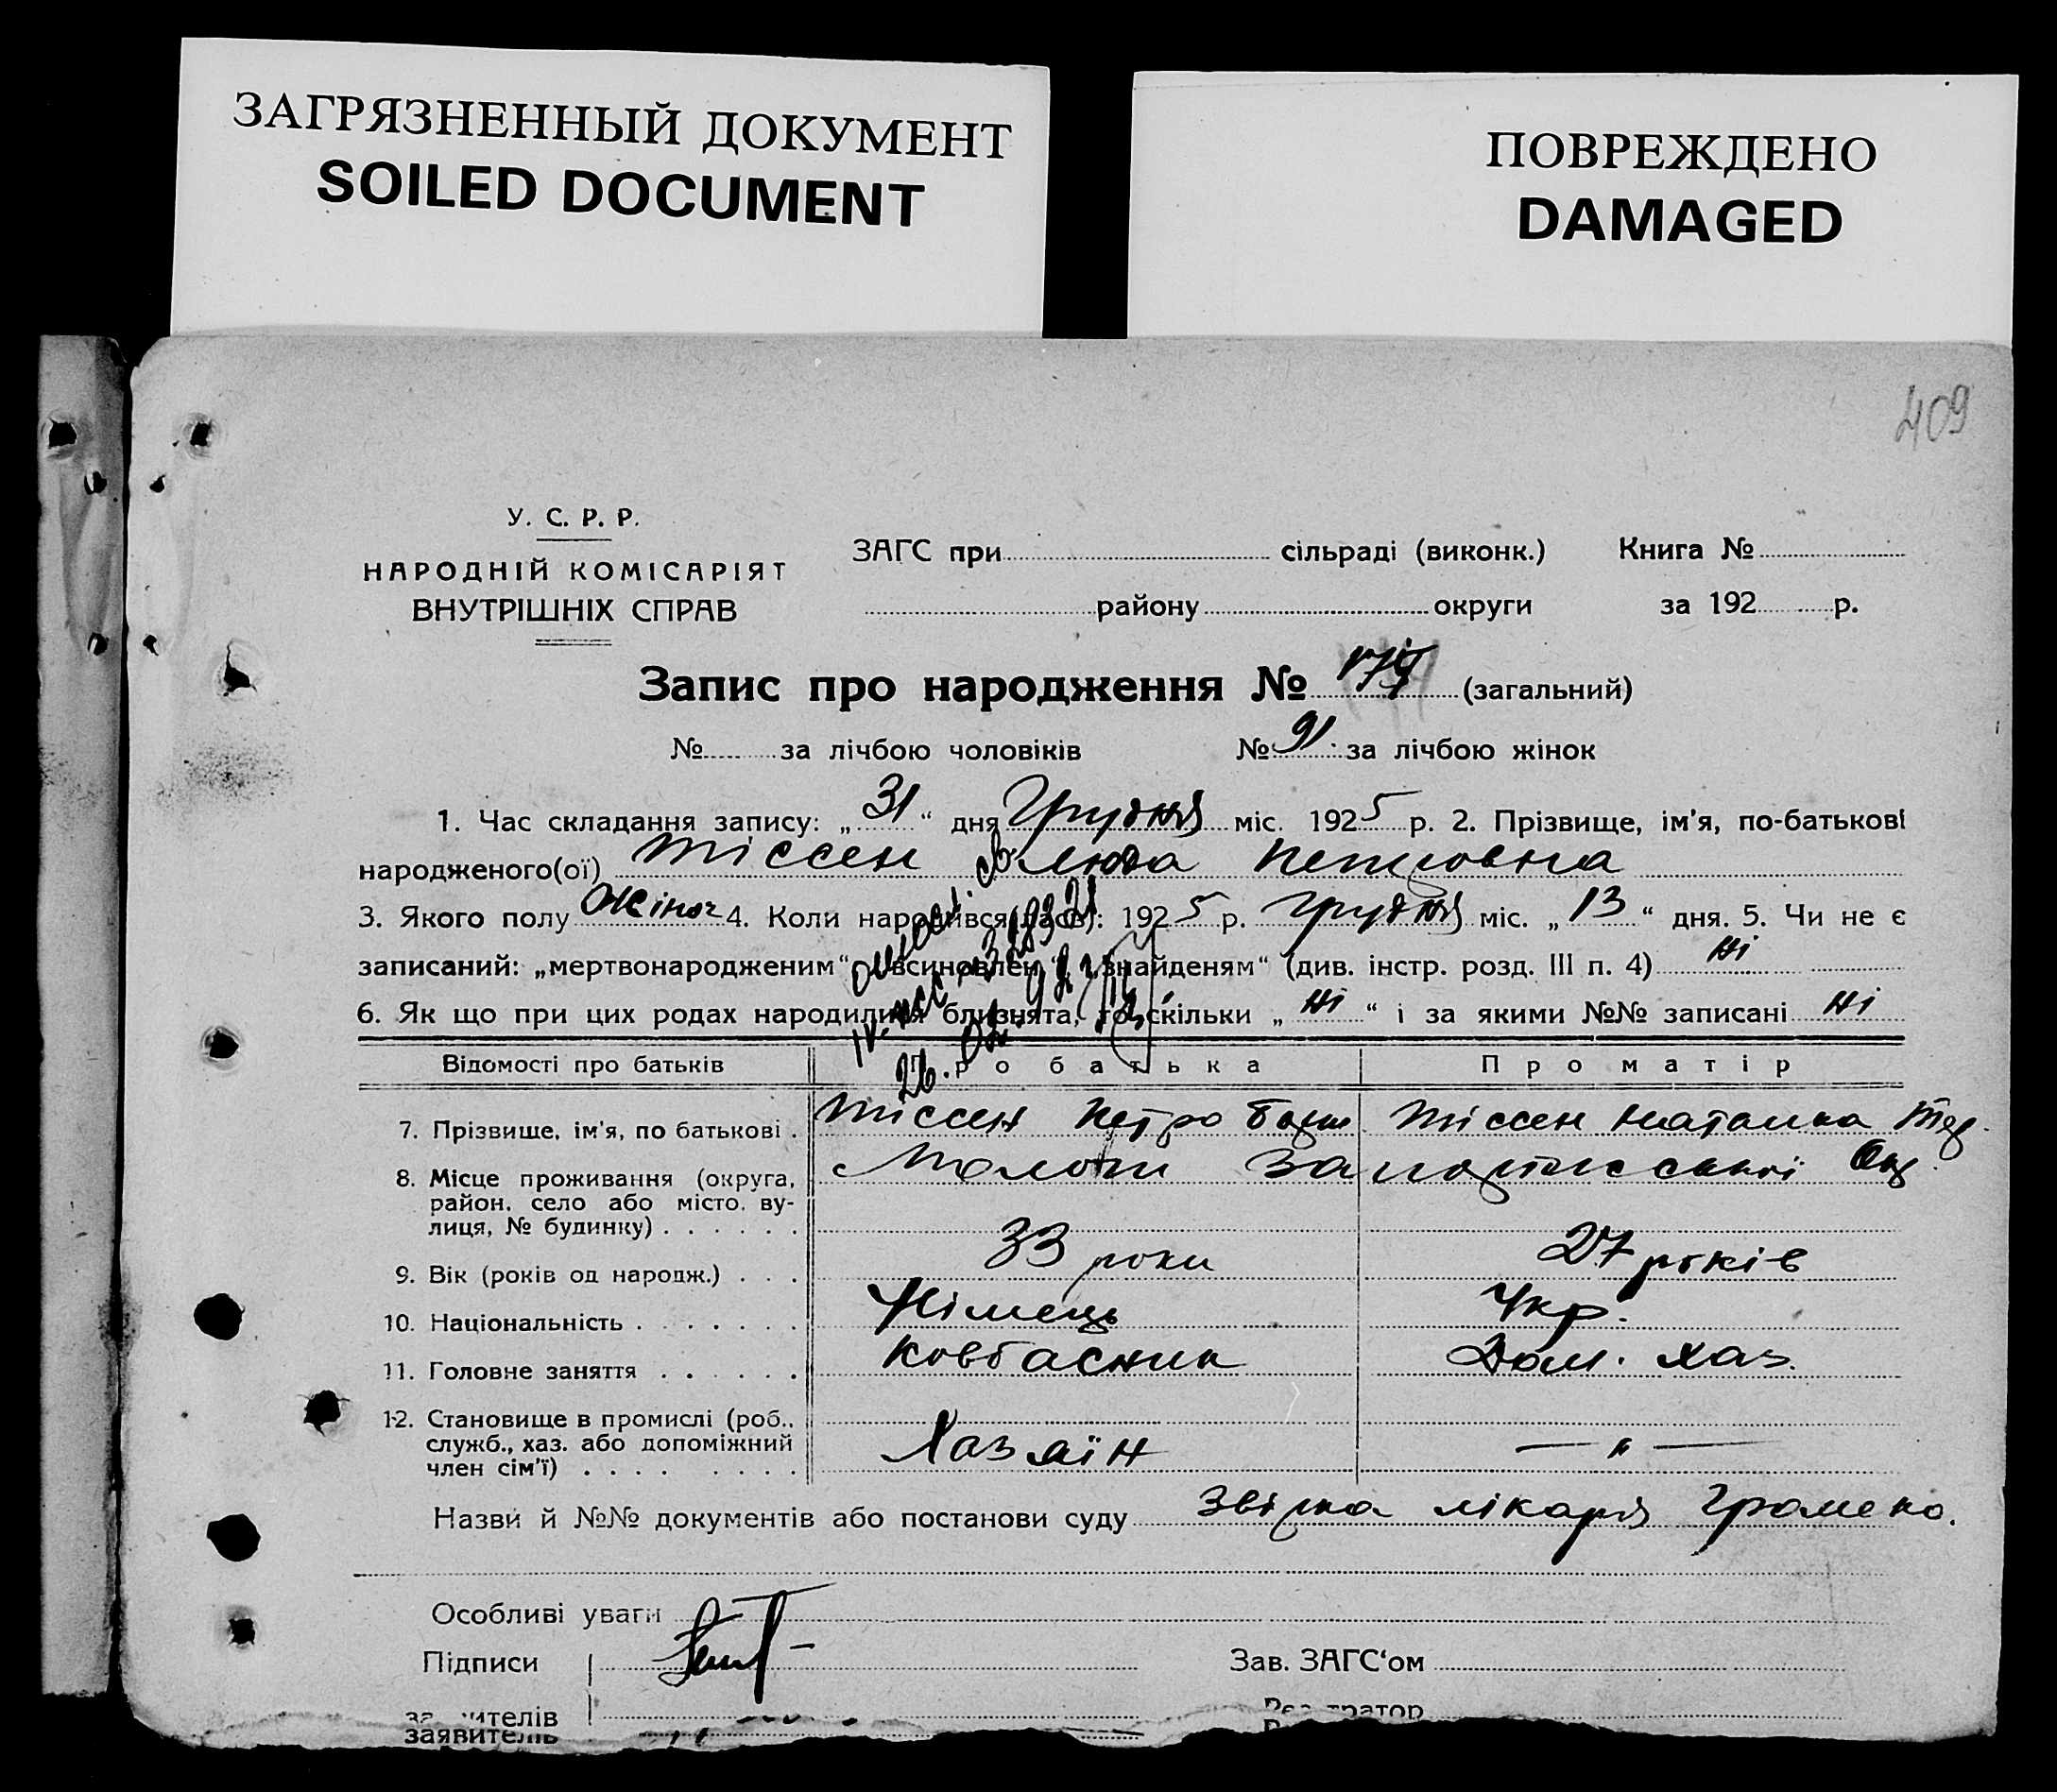 ЗАГРЯЗНЕННЫЙ ДОКУМЕНТ
SOILED DOCUMENT
ПОВРЕЖДЕНО
DAMAGED
409
У. С. Р. Р.
НАРОДНІЙ КОМІСАРІЯТ
ВНУТРІШНІХ СПРАВ
ЗАГС при сільраді (виконк.) Книга №
району округи за 192 р.
Запис про народження № (загальний)
№ за лічбою чоловіків № 91 за лічбою жінок
1. Час складання запису: „31“ дня Грудня міс. 1925 р. 2. Прізвище, ім'я, по-батькові
народженого(ої) Тіссен Люда Петровна
3. Якого полу Жіноч 4. Коли народився(лася): 1925 р. Грудня міс. „13“ дня. 5. Чи не є
записаний: „мертвонародженим“ „всиновлен“ „знайденям“ (див. інстр. розд. III п. 4) Ні
6. Як що при цих родах народилися близнята, то скільки „Ні“ і за якими №№ записані Ні
Відомості про батьків Про батька Про матір
7. Прізвище, ім'я, по батькові . Тіссен Петро Тіссен Наталка
8. Місце проживання (округа, Запоріжської Окр.
район, село або місто, ву-
лиця, № будинку) . . . . . .
9. Вік (років од народж.) . . . 33 роки 27 років
10. Національність . . . . . . . Німець Укр.
11. Головне заняття . . . . . . Ковбасник Дом. хаз.
12. Становище в промислі (роб.,
служб., хаз. або допоміжний Хазяїн — „ —
член сім'ї) . . . . . . . .
Назви й №№ документів або постанови суду Звістка лікаря
Особливі уваги
Підписи Зав. ЗАГС‘ом
заявителів